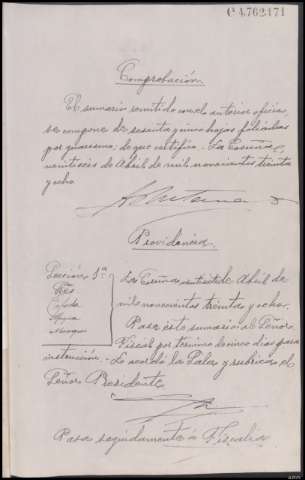 C 4.762.171
Comprobación
El sumario remitido con el anterior oficio,
se compone de sesenta y cinco hojas foliadas
por guarismo; de que certifico. - La Coruña
veintiseis de Abril de mil novecientos treinta
y ocho.
Providencia.
Sección 1ª
Sres.
La Coruña veintisiete de Abril de
mil novecientos treinta y ocho.
Pase este sumario al Señor
Fiscal por termino de cinco dias para
instrucción. - Lo acordó la Sala y rubrica el
Señor Presidente
Pasa seguidamente a Fiscalía